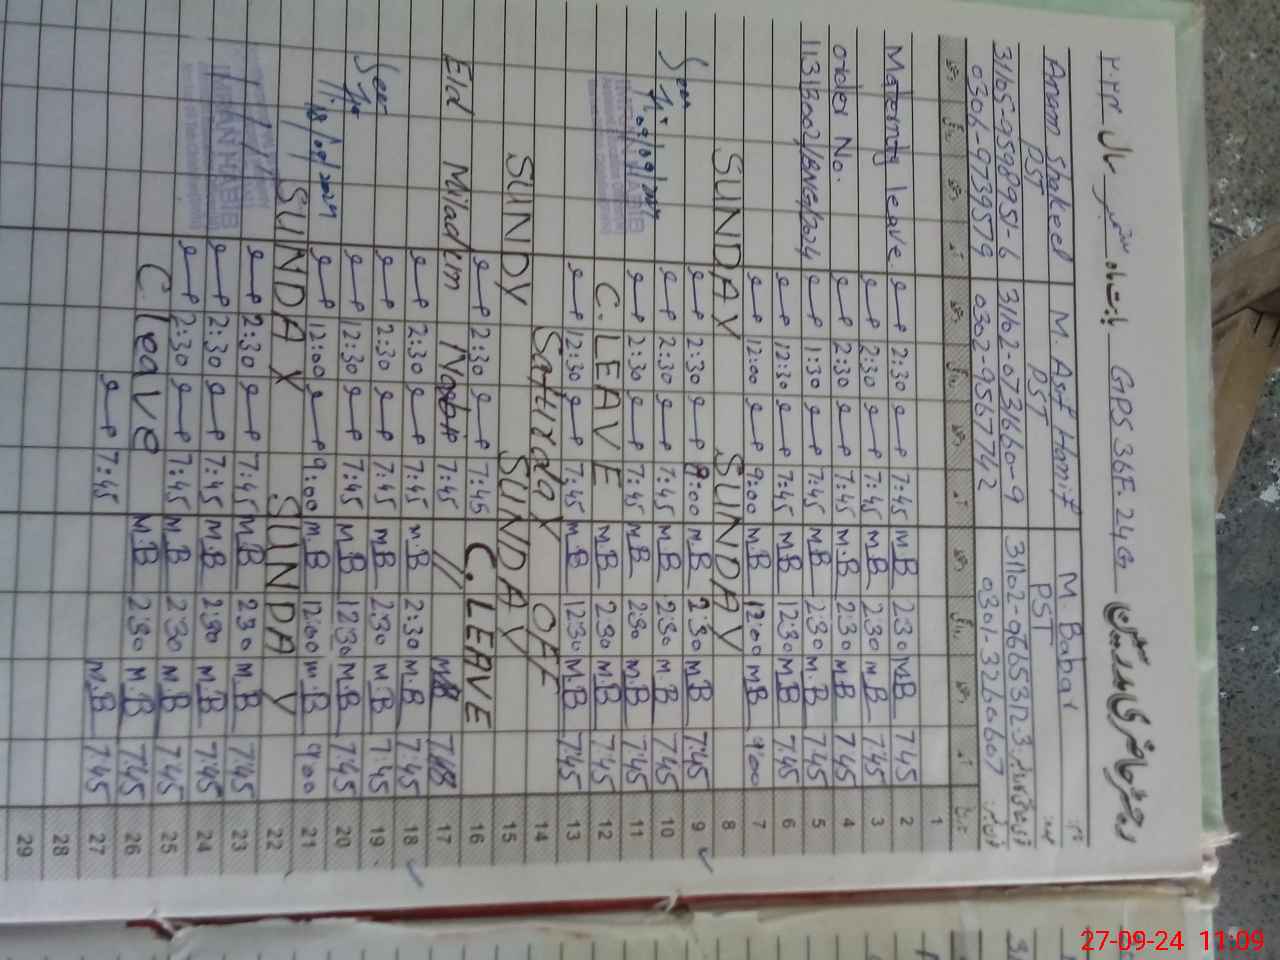 بابت ماہ ستمبر سال ۲۰۲۴ GPS 36F. 24G رجسٹر حاضری مدرسین
Anam Shakeel M. Asif Hanif M. Babar
PST PST PST
31105-9598951-6 31102-0731660-9 31102-0665312-3
0304-9739579 0302-9567742 0301-3260607
1
Maternity leave. 2:30 7:45 M.B 2:30 M.B 7:45 2
2:30 7:45 M.B 2:30 M.B 7:45 3
order No. 2:30 7:45 M.B 2:30 M.B 7:45 4
11313002//BNG/2024 1:30 7:45 M.B 2:30 M.B 7:45 5
12:30 7:45 M.B 12:30 M.B 7:45 6
12:00 9:00 M.B 12:00 M.B 9:00 7
SUNDAY SUNDAY 8
2:30 8:00 M.B 2:30 M.B 7:45 9
Seen 2:30 7:45 M.B 2:30 M.B 7:45 10
2:30 7:45 M.B 2:30 M.B 7:45 11
C. LEAVE M.B 2:30 M.B 7:45 12
12:30 7:45 M.B 12:30 M.B 7:45 13
Saturday OFF 14
SUNDY SUNDAY 15
2:30 7:45 C.LEAVE 16
Eid Milad un Nabi 7:45 // M.B 7:45 17
2:30 7:45 M.B 2:30 M.B 7:45 18
Seen 2:30 7:45 M.B 2:30 M.B 7:45 19
12:30 7:45 M.B 12:30 M.B 7:45 20
18/09/2024 12:00 9:00 M.B 12:00 M.B 9:00 21
SUNDAY SUNDAY 22
2:30 7:45 M.B 2:30 M.B 7:45 23
2:30 7:45 M.B 2:30 M.B 7:45 24
2:30 7:45 M.B 2:30 M.B 7:45 25
C. leave M.B 2:30 M.B 7:45 26
7:45 M.B 7:45 27
28
29
27-09-24 11:09